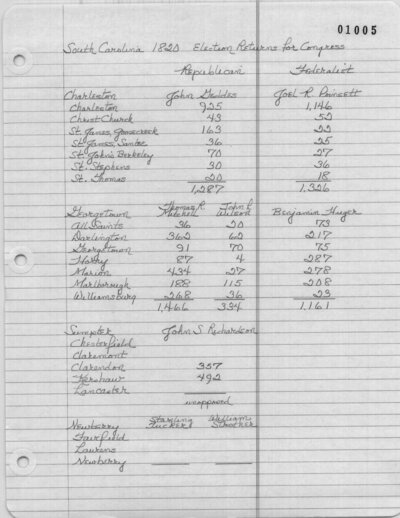 01005
South Carolina 1820 Election Returns for Congress
Republican Federalist
Charleston John Geddes Joel R. Poinsett
Charleston 925 1,146
Christ Church 43 52
St. James, Goosecreek 163 22
St. James, Santee 36 25
St. John's Berkeley 70 27
St. Stephens 30 36
St. Thomas 20 18
1,287 1,326
Georgetown Thomas R. Mitchell John L. Wilson Benjamin Huger
All Saints 36 20 73
Darlington 362 62 217
Georgetown 91 70 75
Horry 87 4 287
Marion 434 27 278
Marlborough 188 115 208
Williamsburg 268 36 23
1,466 334 1,161
Sumpter John S. Richardson
Chesterfield
Claremont
Clarendon 357
Kershaw 492
Lancaster
unopposed
Newberry Starling Tucker William
Fairfield
Laurens
Newberry